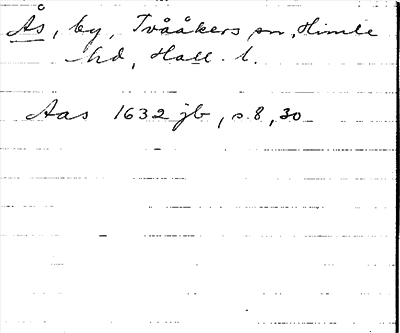 Ås, by, Tvååkers sn, Himle
hd, Hall. l.
Aas 1632 jb, s. 8, 30